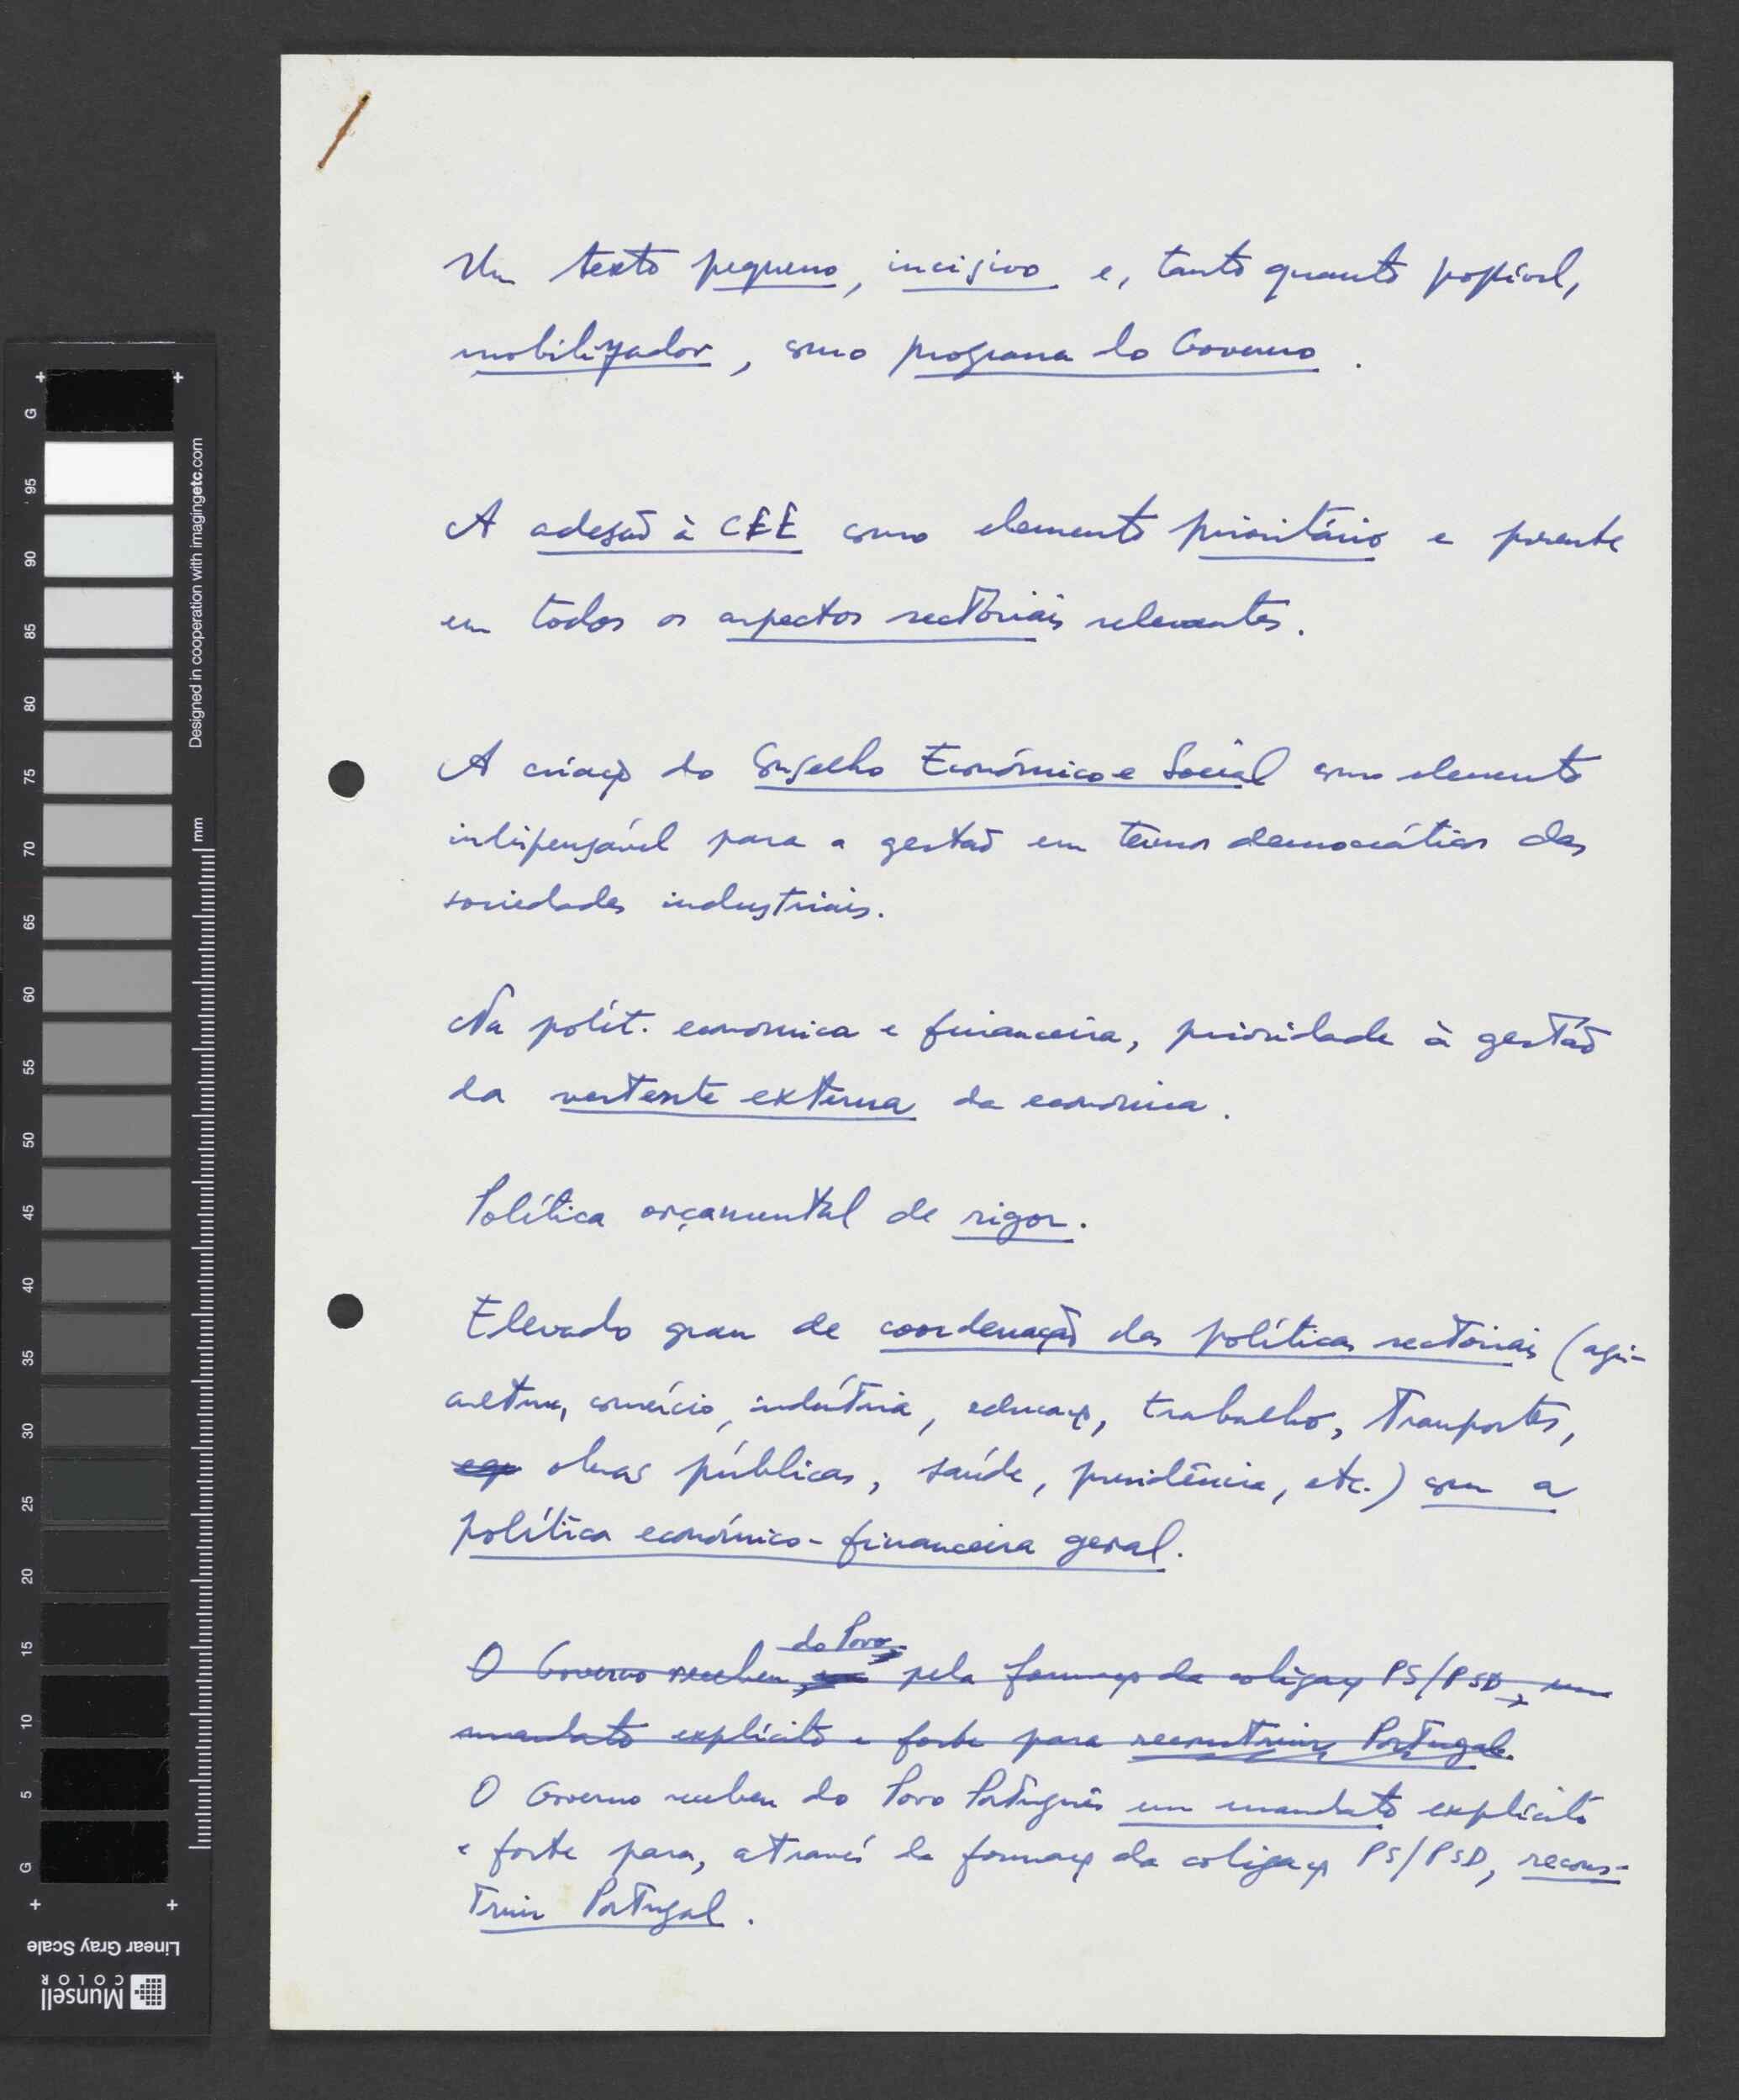 Um texto pequeno, incisivo e, tanto quanto possível,
mobilizador, como programa do Governo.
A adesão à CEE como elemento prioritário e presente
em todos os aspectos sectoriais relevantes.
A criação do Conselho Económico e Social como elemento
indispensável para a gestão em termos democráticos das
sociedades industriais.
Na polít. economica e financeira, prioridade à gestão
da vertente externa da economia.
Política orçamental de rigor.
Elevado grau de coordenação das políticas sectoriais (agri-
cultura, comércio, indústria, educação, trabalho, Transportes,
obras públicas, saúde, previdência, etc.) com a
política económico-financeira geral.
do Povo,
O Governo recebeu, pela formação da coligação PS/PSD, um
mandato explícito e forte para reconstruir Portugal.
O Governo recebeu do Povo Português um mandato explícito
e forte para, através da formação da coligação PS/PSD, recons-
truir Portugal.
+ +
G
95
90
85
80
75
70
65
60
55
50
45
40
35
30
25
20
15
10
5
G
+ +
Designed in cooperation with imagingetc.com
mm
Linear Gray Scale
Munsell
COLOR